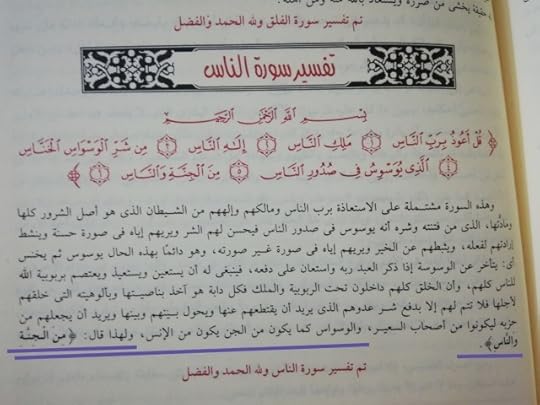 خليقة يخشى من ضرره ويستعاذ بالله منه ومن أهله.
تم تفسير سورة الفلق ولله الحمد والفضل
تفسير سورة الناس
بِسْمِ اللَّهِ الرَّحْمَنِ الرَّحِيمِ
﴿ قُلْ أَعُوذُ بِرَبِّ النَّاسِ ١ مَلِكِ النَّاسِ ٢ إِلَهِ النَّاسِ ٣ مِن شَرِّ الْوَسْوَاسِ الْخَنَّاسِ
٤ الَّذِي يُوَسْوِسُ فِي صُدُورِ النَّاسِ ٥ مِنَ الْجِنَّةِ وَالنَّاسِ ٦ ﴾
وهذه السورة مشتملة على الاستعاذة برب الناس ومالكهم وإلههم من الشيطان الذى هو أصل الشرور كلها
ومادَّتها، الذى من فتنته وشره أنه يوسوس فى صدور الناس فيحسن لهم الشر ويريهم إياه فى صورة حسنة وينشط
إرادتهم لفعله، ويثبطهم عن الخير ويريهم إياه فى صورة غير صورته، وهو دائمًا بهذا الحال يوسوس ثم يخنس
أى: يتأخر عن الوسوسة إذا ذكر العبد ربه واستعان على دفعه، فينبغى له أن يستعين ويستعيذ ويعتصم بربوبية الله
للناس كلهم، وأن الخلق كلهم داخلون تحت الربوبية والملك فكل دابة هو آخذ بناصيتها وبألوهيته التى خلقهم
لأجلها فلا تتم لهم إلا بدفع شر عدوهم الذى يريد أن يقتطعهم عنها ويحول بينهم وبينها ويريد أن يجعلهم من
حزبه ليكونوا من أصحاب السعير، والوسواس كما يكون من الجن يكون من الإنس، ولهذا قال: ﴿من الْجِنَّة
والنَّاس﴾.
تم تفسير سورة الناس ولله الحمد والفضل